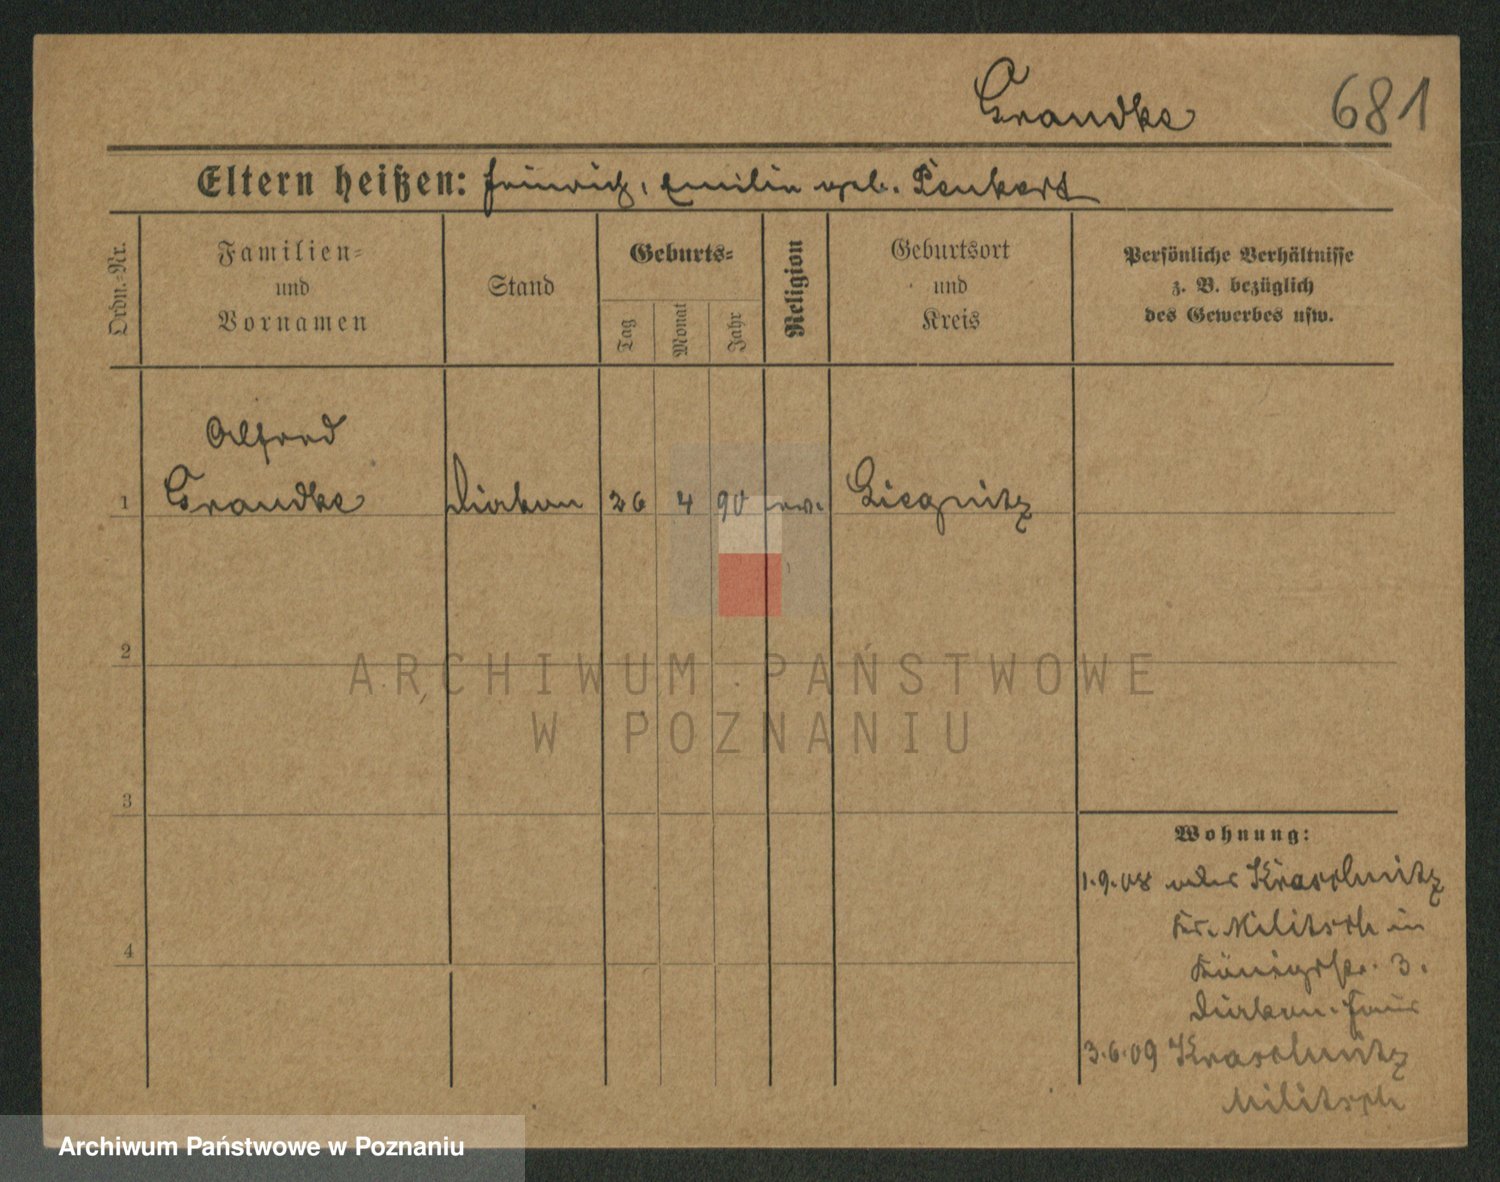 Grandke 681
Eltern heißen: Heinrich, Emilie geb. Penkert
Ordn.-Nr.
Familien-
und
Vornamen
Stand
Geburts-
Tag
Monat
Jahr
Religion
Geburtsort
und
Kreis
Persönliche Verhältnisse
z. B. bezüglich
des Gewerbes usw.
Alfred
1 Grandke Diakon 26 4 90 ev. Liegnitz
2
ARCHIWUM PAŃSTWOWE
W POZNANIU
3
Wohnung:
1.9.08 Kraschnitz
Kr. Militsch in
4
Königstr. 3.
Diakon. Haus
3.6.09 Kraschnitz
Militsch
Archiwum Państwowe w Poznaniu